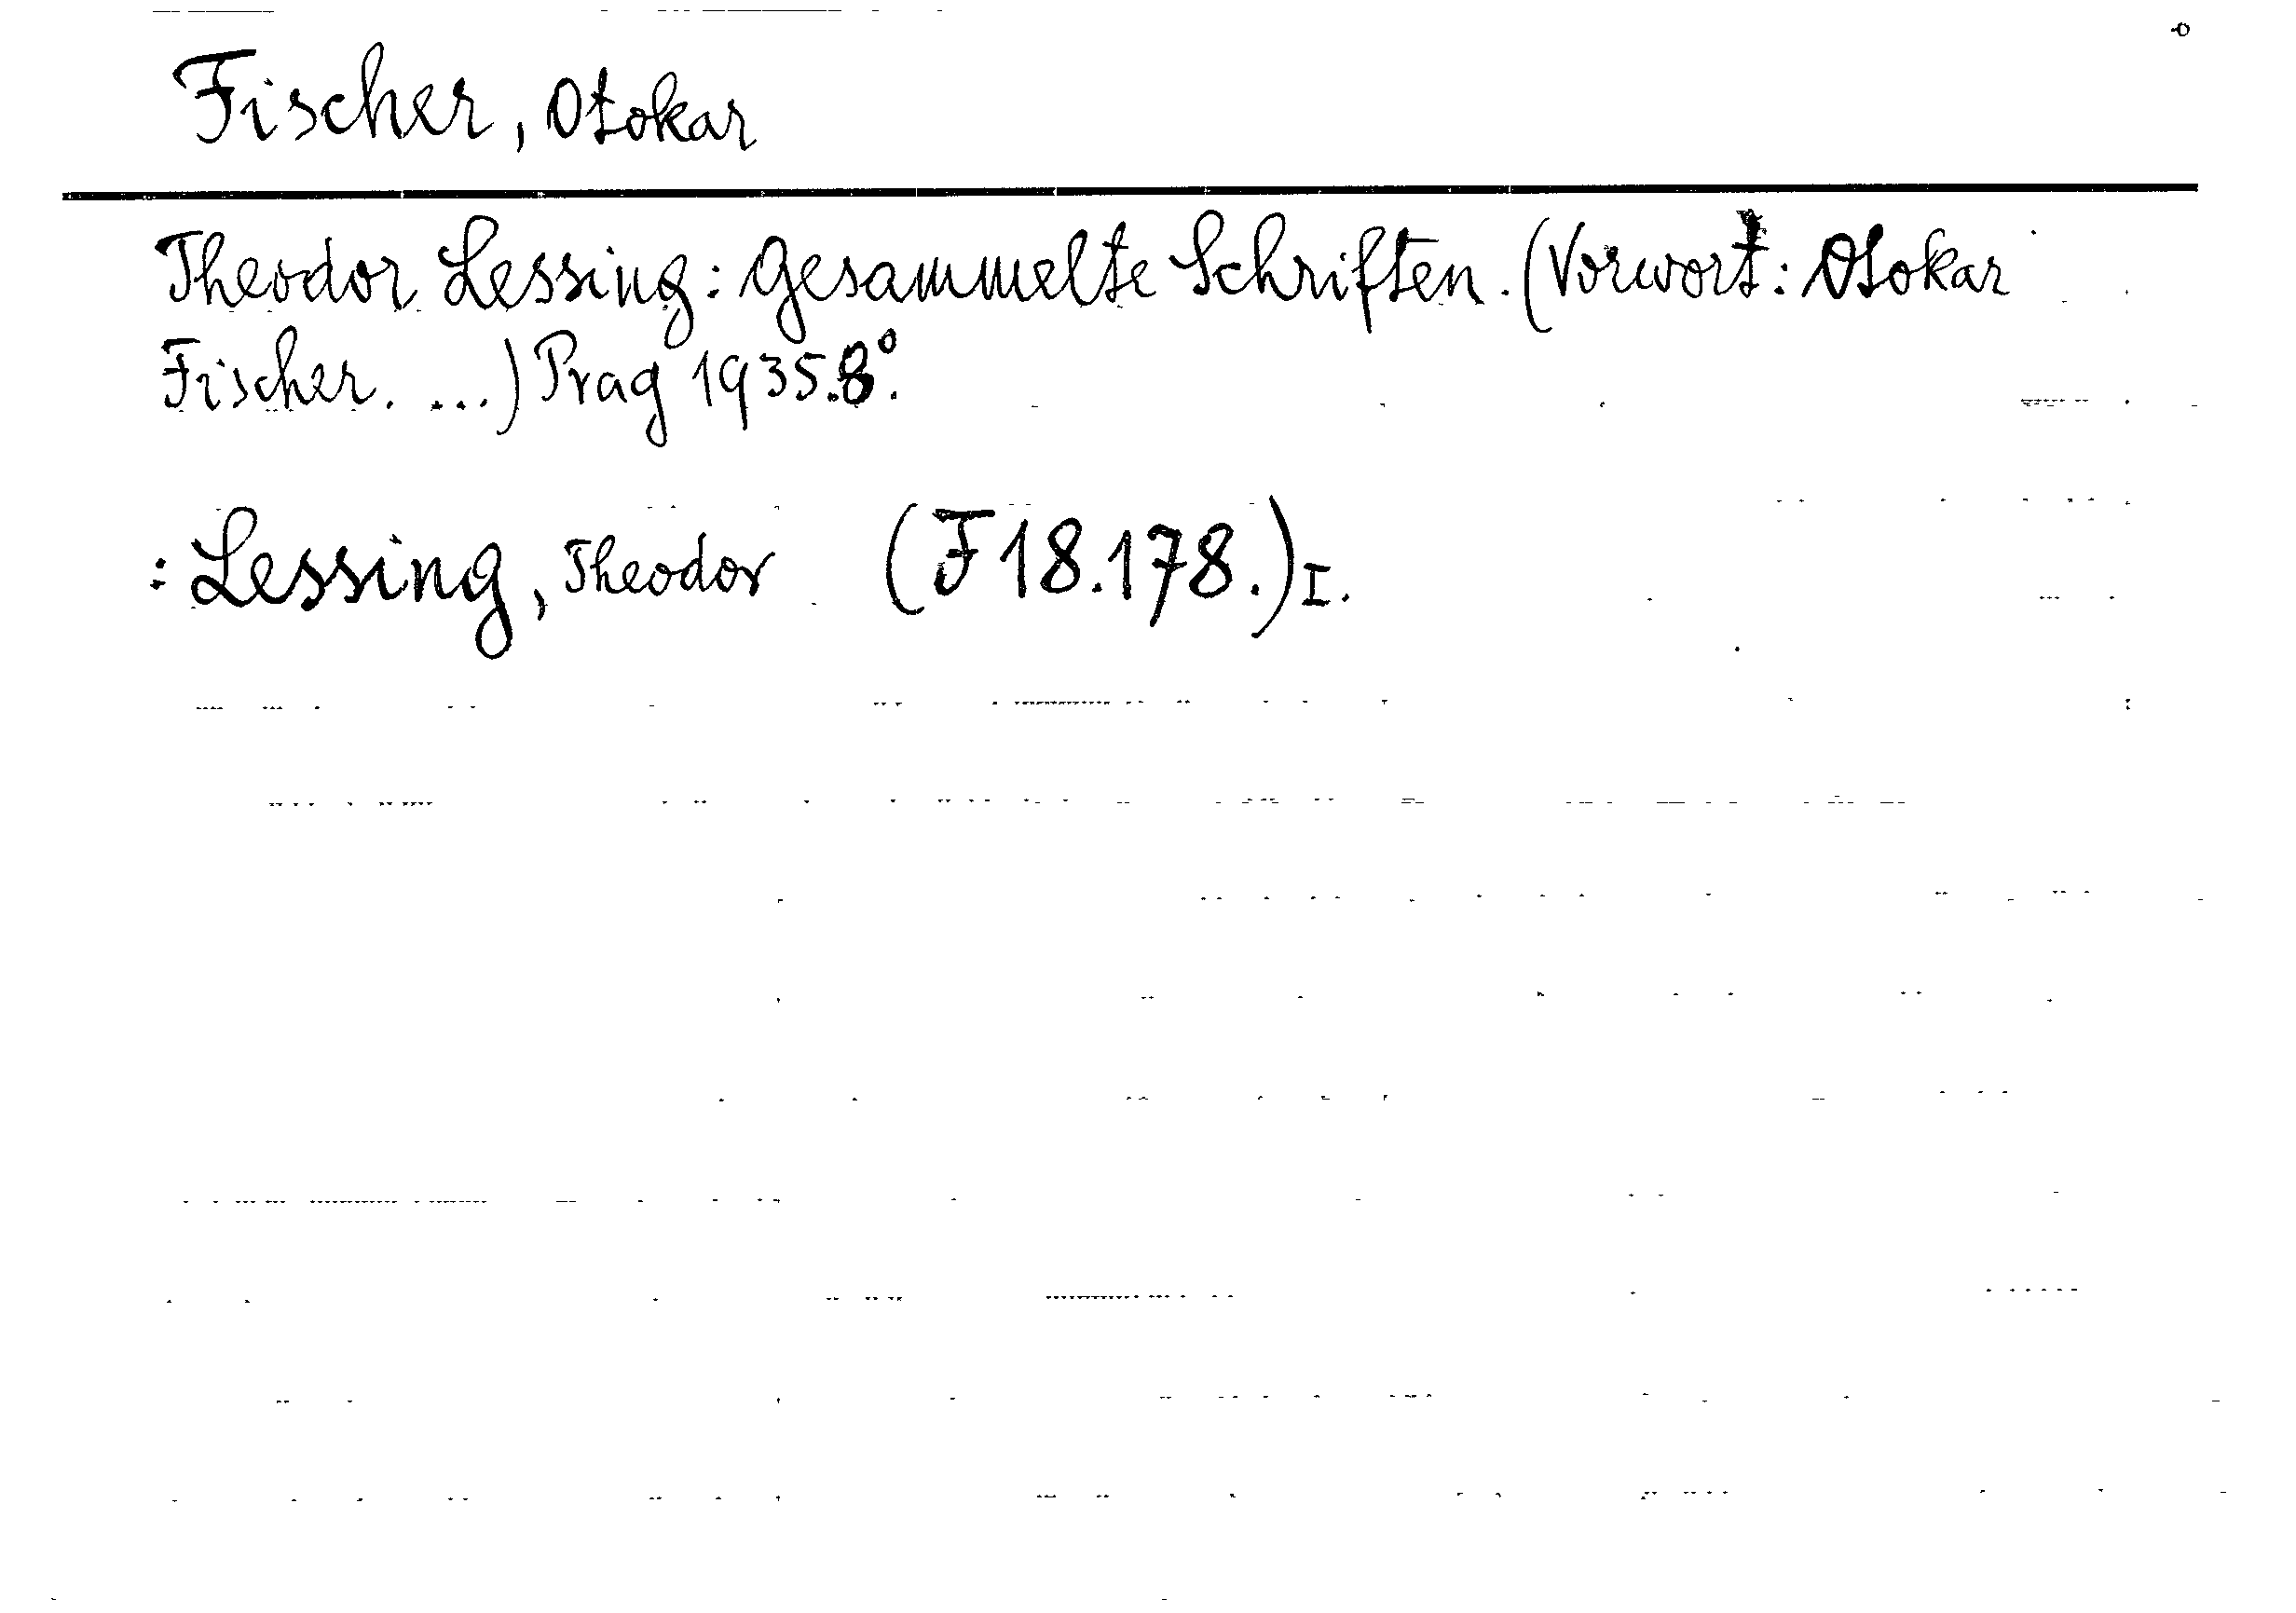 Fischer, Otokar
Theodor Lessing: Gesammelte Schriften. (Vorwort: Otokar
Fischer. ...) Prag 1935. 8°.
: Lessing, Theodor (F 18.178.) I.